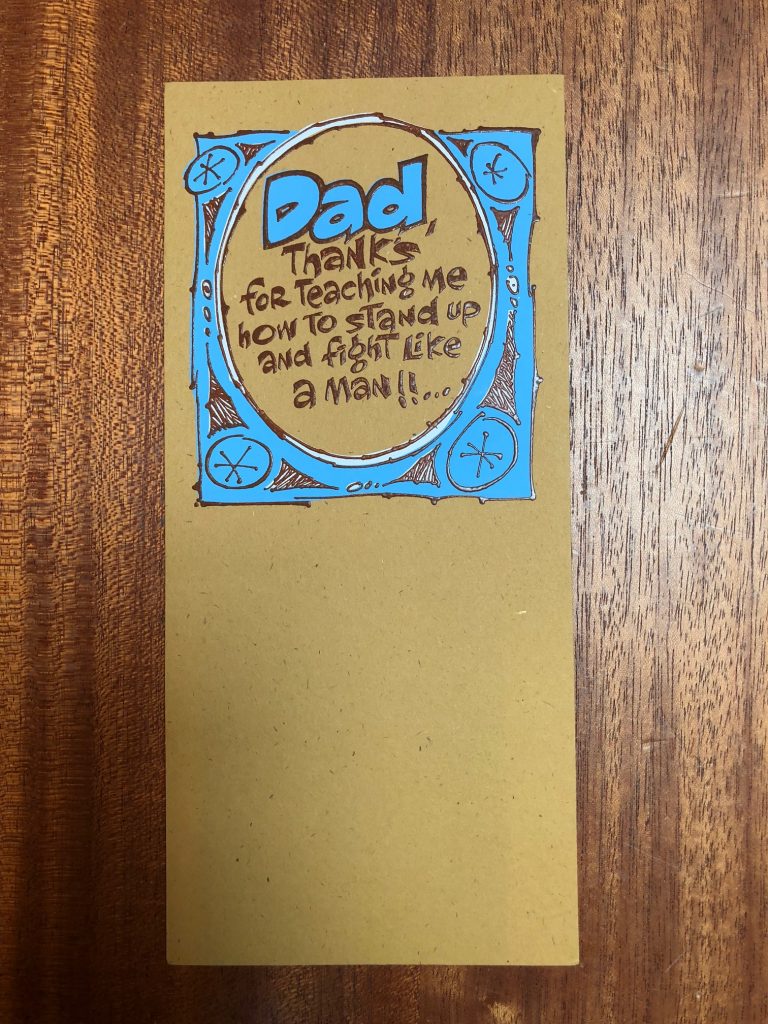 Dad,
THaNKS
foR Teaching Me
how To STand up
and fighT Like
a MaN!!...